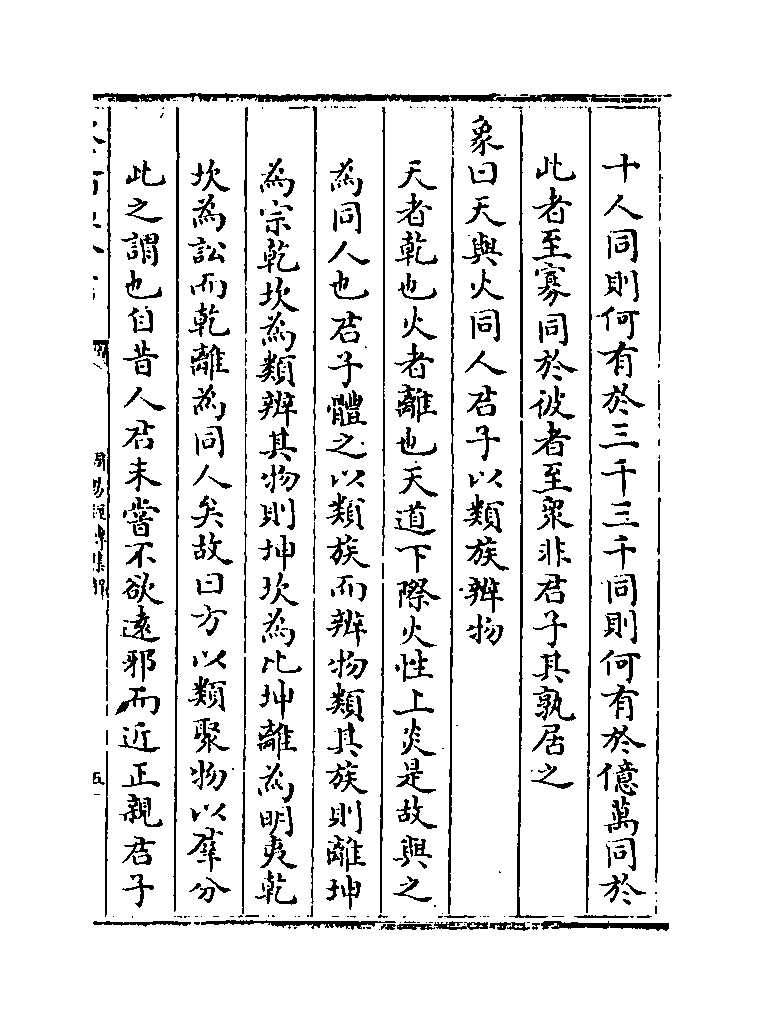 十人同則何有於三千三千同則何有於億萬同於
此者至寡同於彼者至衆非君子其孰居之
象曰天與火同人君子以類族辨物
天者乾也火者離也天道下際火性上炎是故與之
為同人也君子體之以類族而辨物類其族則離坤
為宗乾坎為類辨其物則坤坎為比坤離為明夷乾
坎為訟而乾離為同人矣故曰方以類聚物以羣分
此之謂也自昔人君未嘗不欲遠邪而近正親君子
五